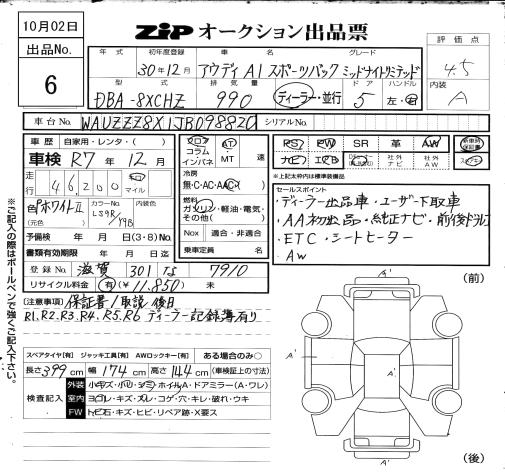 10月02日
ZIP オークション出品票
出品No.
6
年式 初年度登録 車名 グレード
30年12月 アウディ A1 スポーツバック ミッドナイトリミテッド
型式 排気量 ドア ハンドル
DBA-8XCHZ 990 ディーラー・並行 5 左・右
評価点
4.5
内装
A
車台No. WAUZZZ8X1JB098820 シリアルNo.
車歴 自家用・レンタ・( )
車検 R7年12月
走行 46200 キロ マイル
色 ホワイトII (元色) カラーNo. LS9R/Y9B
予備検 年 月 日(3・8)No.
書類有効期限 年 月 日迄
登録No. 滋賀 301 な 7910
リサイクル料金 有(¥11.850) 未
フロア コラム インパネ
AT MT 速
冷房
無・C・AC・AAC
燃料
ガソリン・軽油・電気・その他( )
Nox 適合・非適合
乗車定員 名
PS PW SR 革 AW 新車時保証書
ナビ エアB 社外ナビ 社外AW スペアキー
※上記太枠内は標準装備品
セールスポイント
・ディーラー出品車・ユーザー下取車
・AA初出品・純正ナビ・前後ドラレコ
・ETC・シートヒーター
・AW
[注意事項] 保証書/取説 後日
R1.R2.R3.R4.R5.R6 ディーラー記録簿有り
スペアタイヤ[有] ジャッキ工具[有] AWロックキー[有] ある場合のみ○
長さ399cm 幅174cm 高さ144cm (車検証上の寸法)
検査記入
外装 小キズ・小凹・シミ・ホイルA・ドアミラー(A・ワレ)
室内 ヨゴレ・キズ・スレ・コゲ・穴・キレ・破れ・ウキ
FW トビ石・キズ・ヒビ・リペア跡・X要ス
(前)
A'
A'
A'
(後)
※ご記入の際はボールペンで強くご記入下さい。